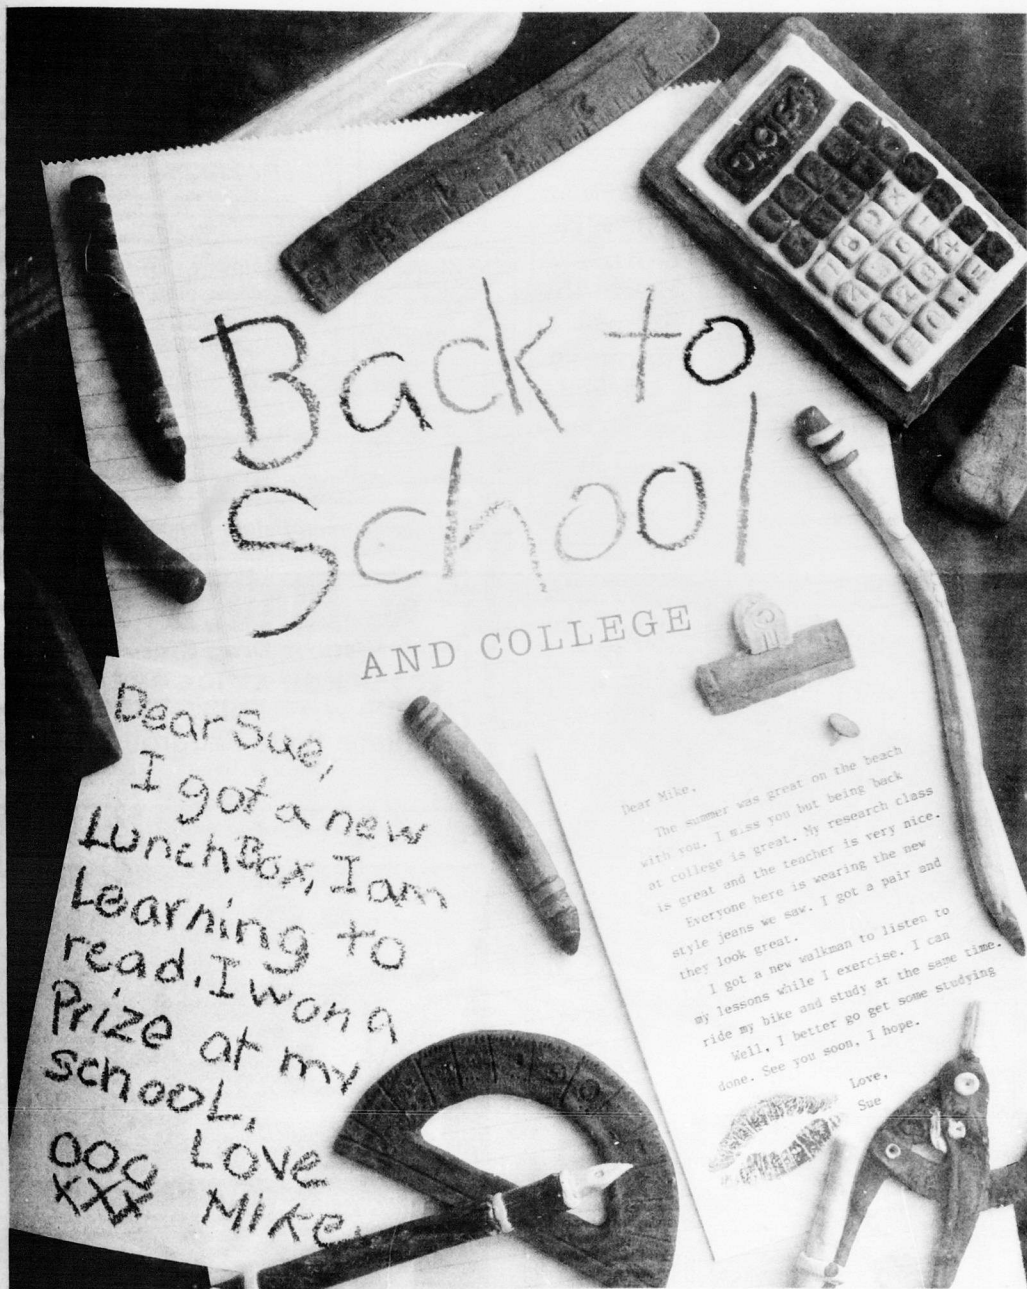 Back to
School
AND COLLEGE
Dear Sue,
I got a new
LunchBox, I am
Learning to
read. I won a
Prize at my
school.
Love
Mike.
OOO
XXX
Dear Mike,
The summer was great on the beach
with you. I miss you but being back
at college is great. My research class
is great and the teacher is very nice.
Everyone here is wearing the new
style jeans we saw. I got a pair and
they look great.
I got a new walkman to listen to
my lessons while I exercise. I can
ride my bike and study at the same time.
Well, I better go get some studying
done. See you soon, I hope.
Love,
Sue